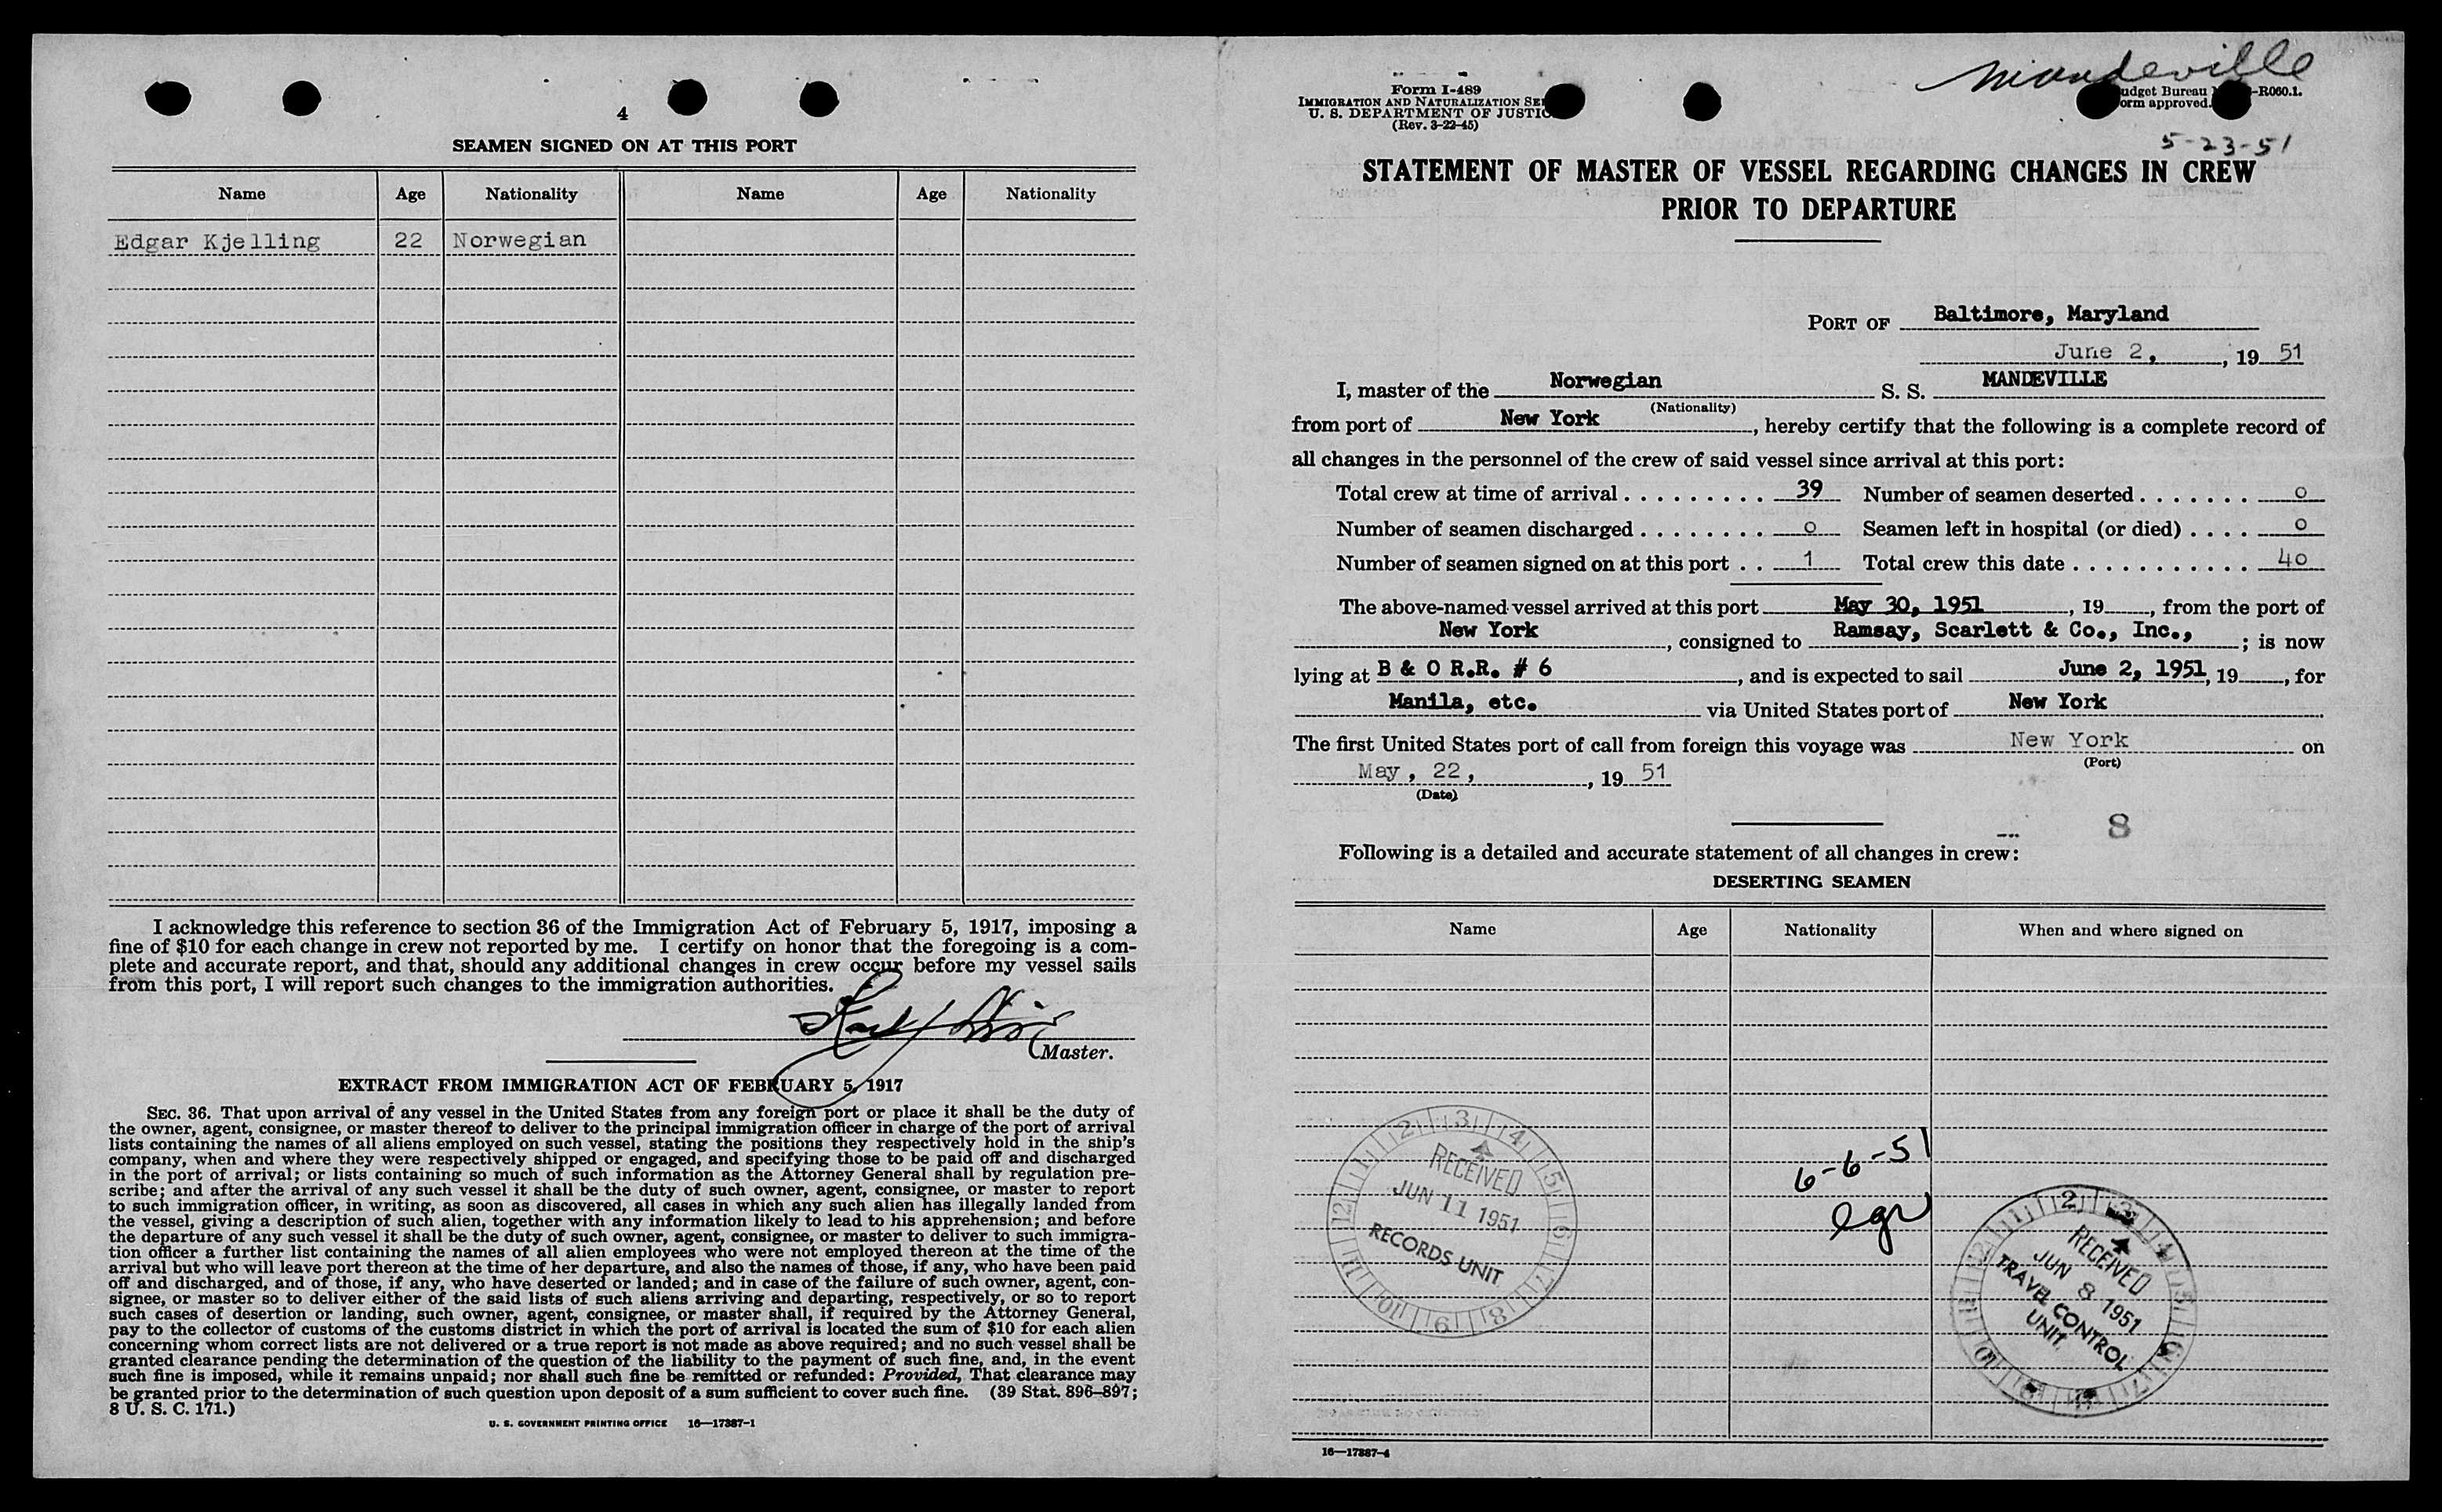 4
SEAMEN SIGNED ON AT THIS PORT
Name Age Nationality Name Age Nationality
Edgar Kjelling 22 Norwegian
I acknowledge this reference to section 36 of the Immigration Act of February 5, 1917, imposing a
fine of $10 for each change in crew not reported by me. I certify on honor that the foregoing is a com-
plete and accurate report, and that, should any additional changes in crew occur before my vessel sails
from this port, I will report such changes to the immigration authorities.
Master.
EXTRACT FROM IMMIGRATION ACT OF FEBRUARY 5, 1917
SEC. 36. That upon arrival of any vessel in the United States from any foreign port or place it shall be the duty of
the owner, agent, consignee, or master thereof to deliver to the principal immigration officer in charge of the port of arrival
lists containing the names of all aliens employed on such vessel, stating the positions they respectively hold in the ship's
company, when and where they were respectively shipped or engaged, and specifying those to be paid off and discharged
in the port of arrival; or lists containing so much of such information as the Attorney General shall by regulation pre-
scribe; and after the arrival of any such vessel it shall be the duty of such owner, agent, consignee, or master to report
to such immigration officer, in writing, as soon as discovered, all cases in which any such alien has illegally landed from
the vessel, giving a description of such alien, together with any information likely to lead to his apprehension; and before
the departure of any such vessel it shall be the duty of such owner, agent, consignee, or master to deliver to such immigra-
tion officer a further list containing the names of all alien employees who were not employed thereon at the time of the
arrival but who will leave port thereon at the time of her departure, and also the names of those, if any, who have been paid
off and discharged, and of those, if any, who have deserted or landed; and in case of the failure of such owner, agent, con-
signee, or master so to deliver either of the said lists of such aliens arriving and departing, respectively, or so to report
such cases of desertion or landing, such owner, agent, consignee, or master shall, if required by the Attorney General,
pay to the collector of customs of the customs district in which the port of arrival is located the sum of $10 for each alien
concerning whom correct lists are not delivered or a true report is not made as above required; and no such vessel shall be
granted clearance pending the determination of the question of the liability to the payment of such fine, and, in the event
such fine is imposed, while it remains unpaid; nor shall such fine be remitted or refunded: Provided, That clearance may
be granted prior to the determination of such question upon deposit of a sum sufficient to cover such fine. (39 Stat. 896–897;
8 U. S. C. 171.)
U. S. GOVERNMENT PRINTING OFFICE 16—17387-1
Mandeville
Form I-489
IMMIGRATION AND NATURALIZATION
U. S. DEPARTMENT OF JUSTIC
(Rev. 3-22-45)
Budget Bureau -R060.1.
Form approved.
5-23-51
STATEMENT OF MASTER OF VESSEL REGARDING CHANGES IN CREW
PRIOR TO DEPARTURE
PORT OF Baltimore, Maryland
June 2, , 19 51
I, master of the Norwegian S. S. MANDEVILLE
(Nationality)
from port of New York , hereby certify that the following is a complete record of
all changes in the personnel of the crew of said vessel since arrival at this port:
Total crew at time of arrival . . . . . . . . . 39 Number of seamen deserted . . . . . . . 0
Number of seamen discharged . . . . . . . . 0 Seamen left in hospital (or died) . . . . 0
Number of seamen signed on at this port . . 1 Total crew this date . . . . . . . . . . . 40
The above-named vessel arrived at this port May 30, 1951 , 19 , from the port of
New York , consigned to Ramsay, Scarlett & Co., Inc., ; is now
lying at B & O R.R. # 6 , and is expected to sail June 2, 1951, 19 , for
Manila, etc. via United States port of New York
The first United States port of call from foreign this voyage was New York on
(Port)
May , 22, , 19 51
(Date)
8
Following is a detailed and accurate statement of all changes in crew:
DESERTING SEAMEN
Name Age Nationality When and where signed on
6-6-51
egr
RECEIVED
JUN 11 1951
RECORDS UNIT
12 1 2 3 4 5 6 7 8 9 10 11
RECEIVED
JUN 8 1951
TRAVEL CONTROL
UNIT
16—17387-4